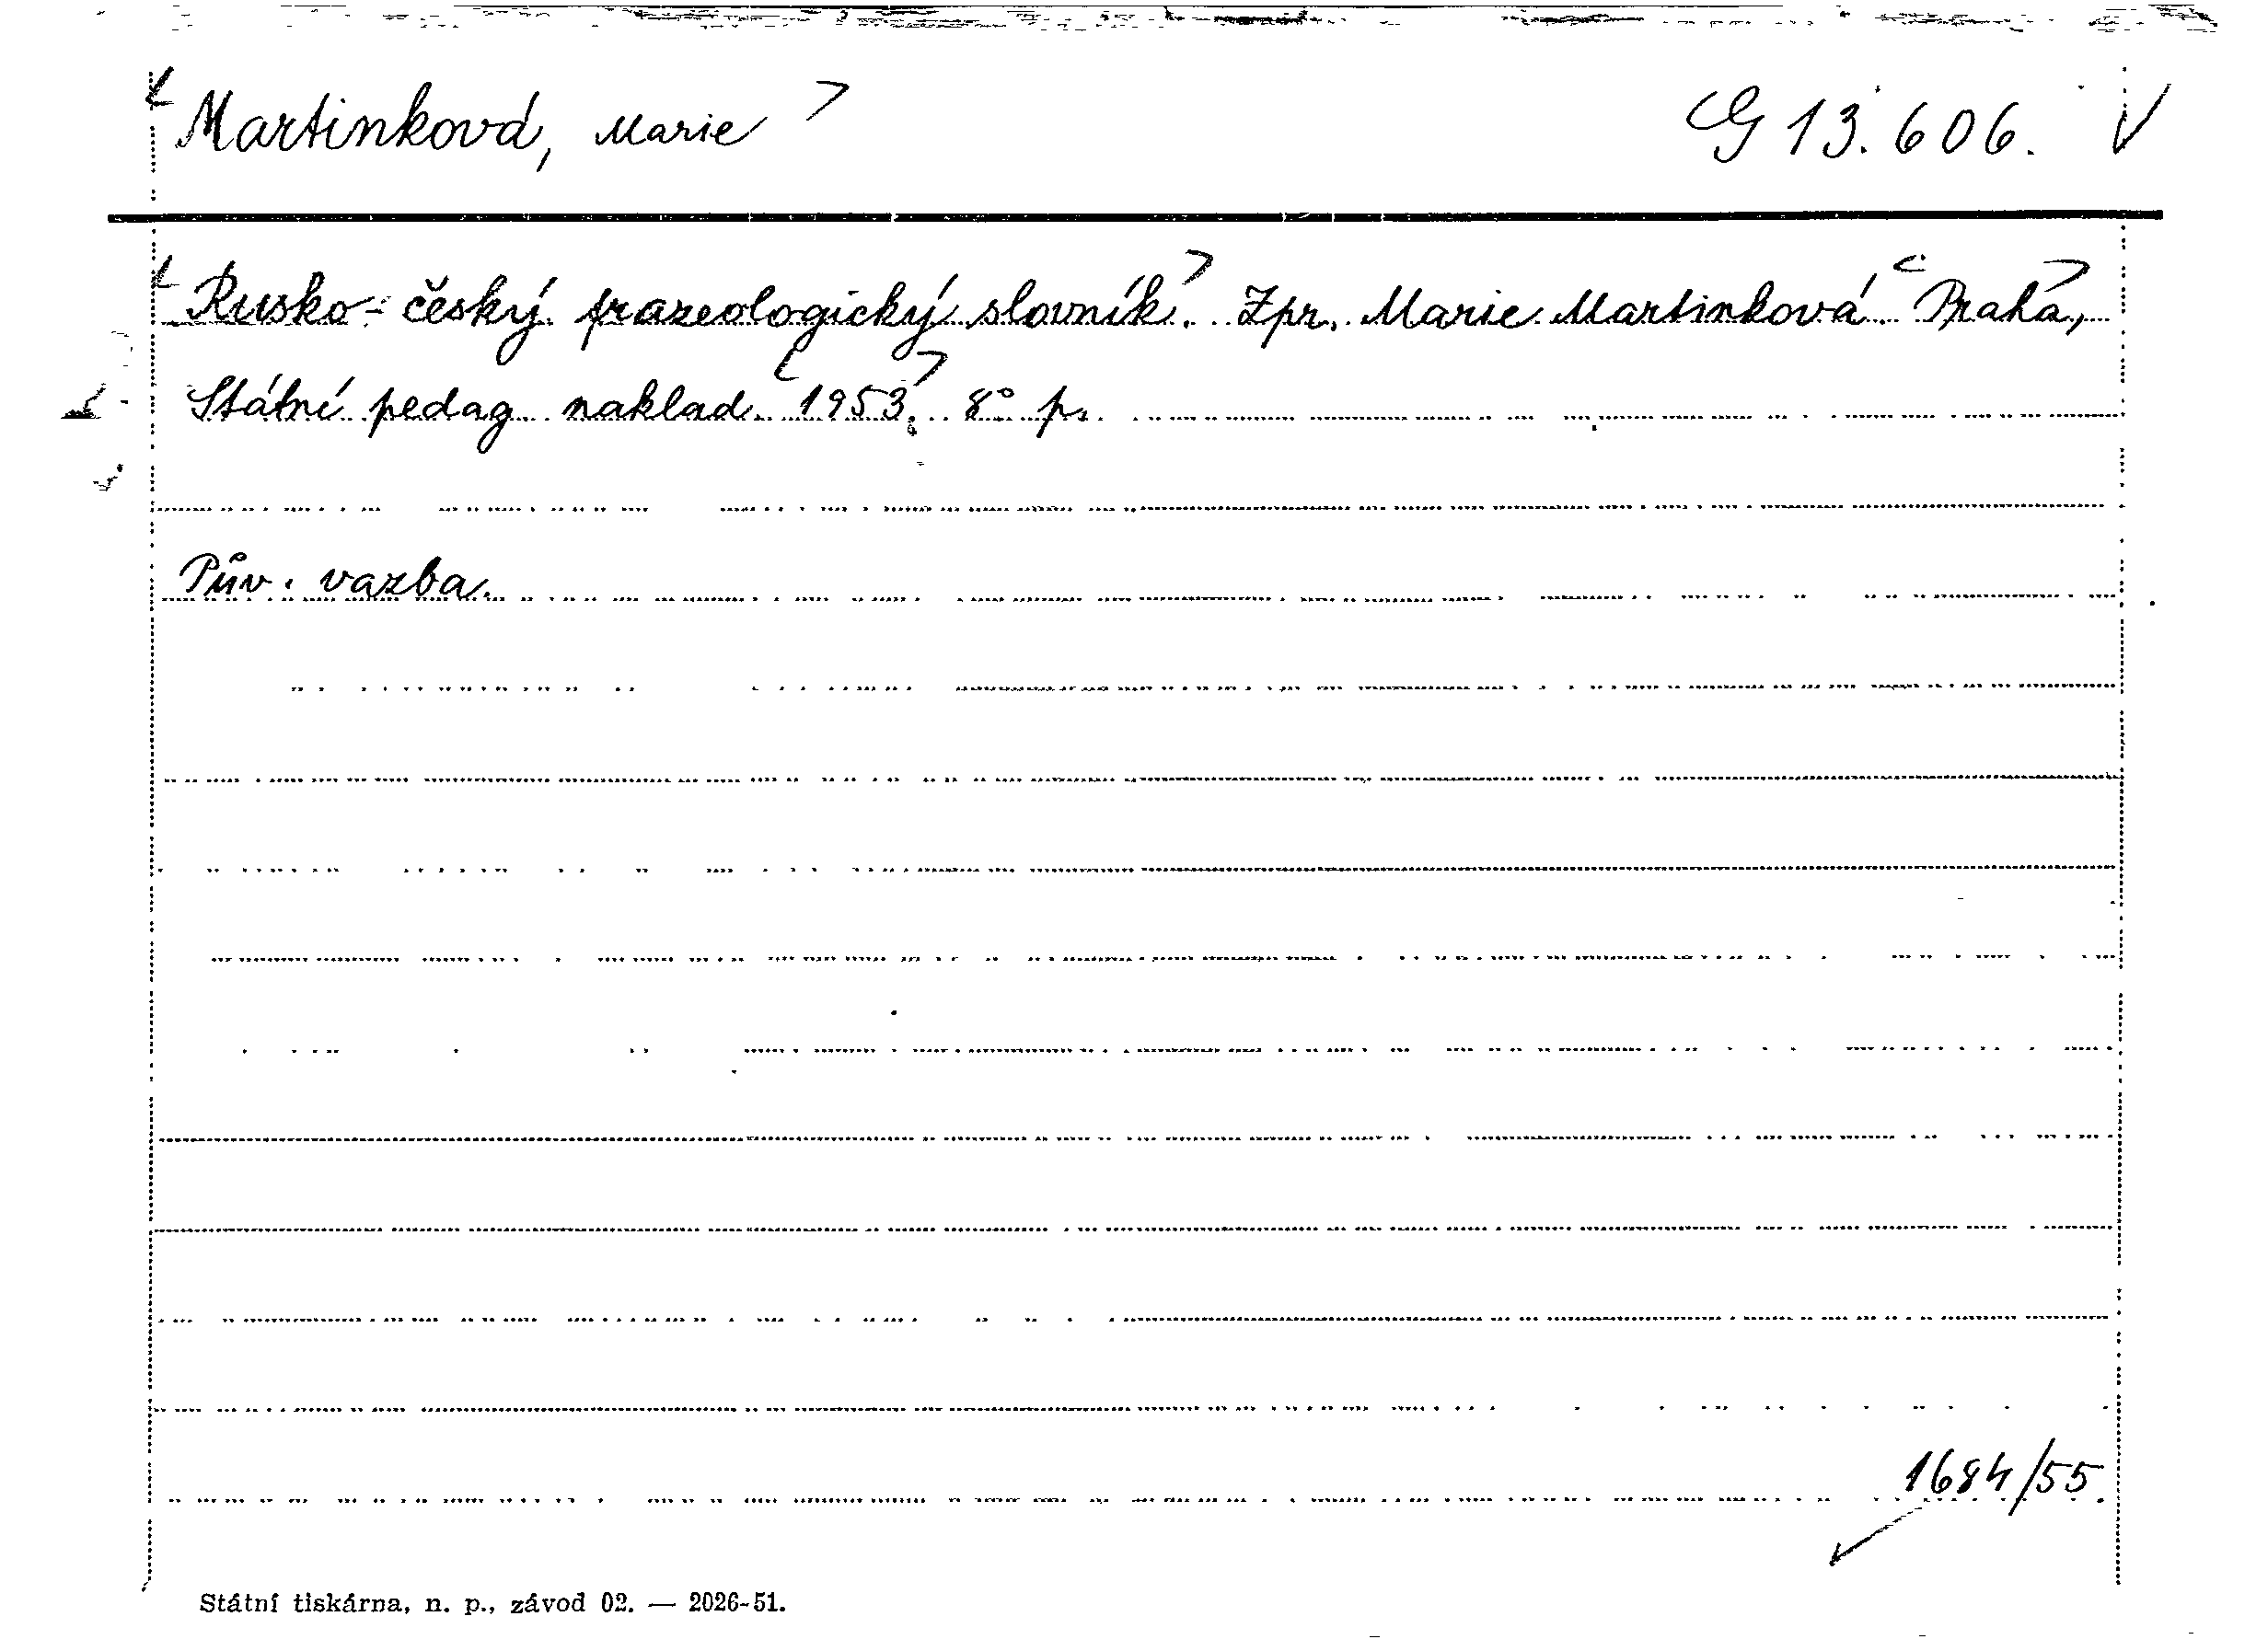 Martinková, Marie G 13.606. V
Rusko-český frazeologický slovník. Zpr. Marie Martinková. Praha,
Státní pedag. naklad. 1953. 8° p.
Pův. vazba.
1684/55.
Státní tiskárna, n. p., závod 02. — 2026-51.